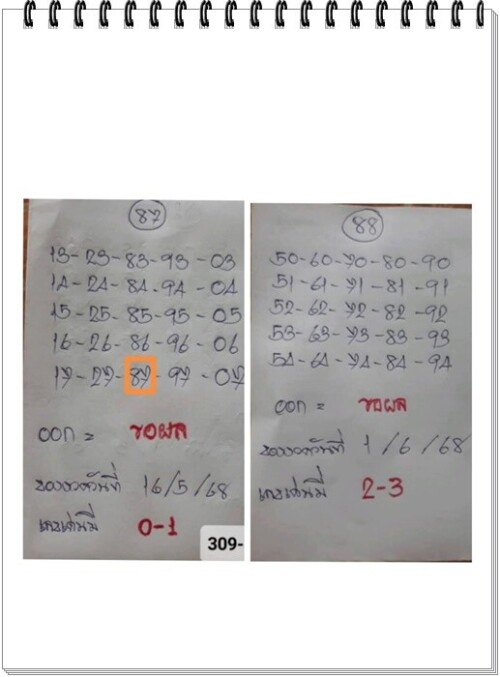 87
13-23-83-93-03
14-24-84-94-04
15-25-85-95-05
16-26-86-96-06
17-27-87-97-07
ออก = ขอผล
ของงวดวันที่ 16/5/68
เลขเด่นมี 0-1
309-
88
50-60-70-80-90
51-61-71-81-91
52-62-72-82-92
53-63-73-83-93
54-64-74-84-94
ออก = ขอผล
ของงวดวันที่ 1/6/68
เลขเด่นมี 2-3